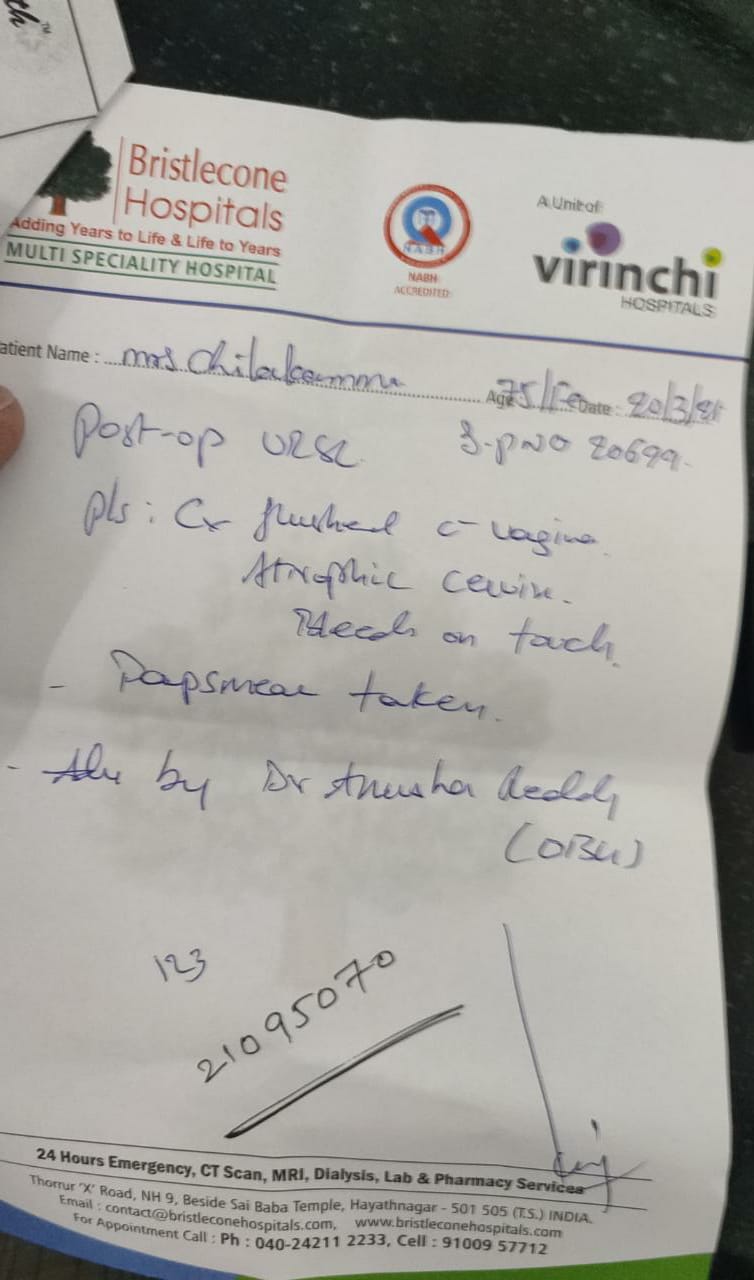 th
Bristlecone
Hospitals
Adding Years to Life & Life to Years
MULTI SPECIALITY HOSPITAL
NABH
NABH
ACCREDITED
A Unit of
virinchi
HOSPITALS
atient Name : mrs Chilakamma Age 75/Fe Date : 20/3/21
Post-op URSL
I-PNO 20699.
Cx flushed c- vagina.
Atrophic cervix.
Bleeds on touch.
- Papsmear taken.
- Adv by Dr Anusha Reddy
(OBG)
123
21095070
24 Hours Emergency, CT Scan, MRI, Dialysis, Lab & Pharmacy Services
Thorrur 'X' Road, NH 9, Beside Sai Baba Temple, Hayathnagar - 501 505 (T.S.) INDIA.
Email : contact@bristleconehospitals.com, www.bristleconehospitals.com
For Appointment Call : Ph : 040-24211 2233, Cell : 91009 57712